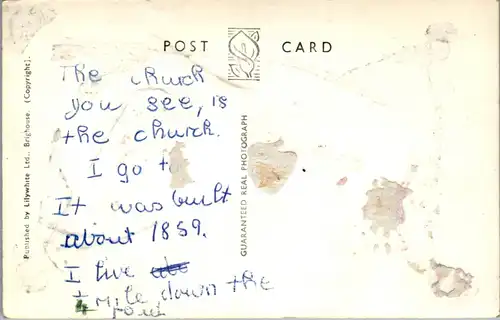 POST CARD
The church
you see, is
the church.
I go t
It was built
about 1859.
I live
1/4 Mile down the
road
GUARANTEED REAL PHOTOGRAPH
Published by Lilywhite Ltd., Brighouse. (Copyright).